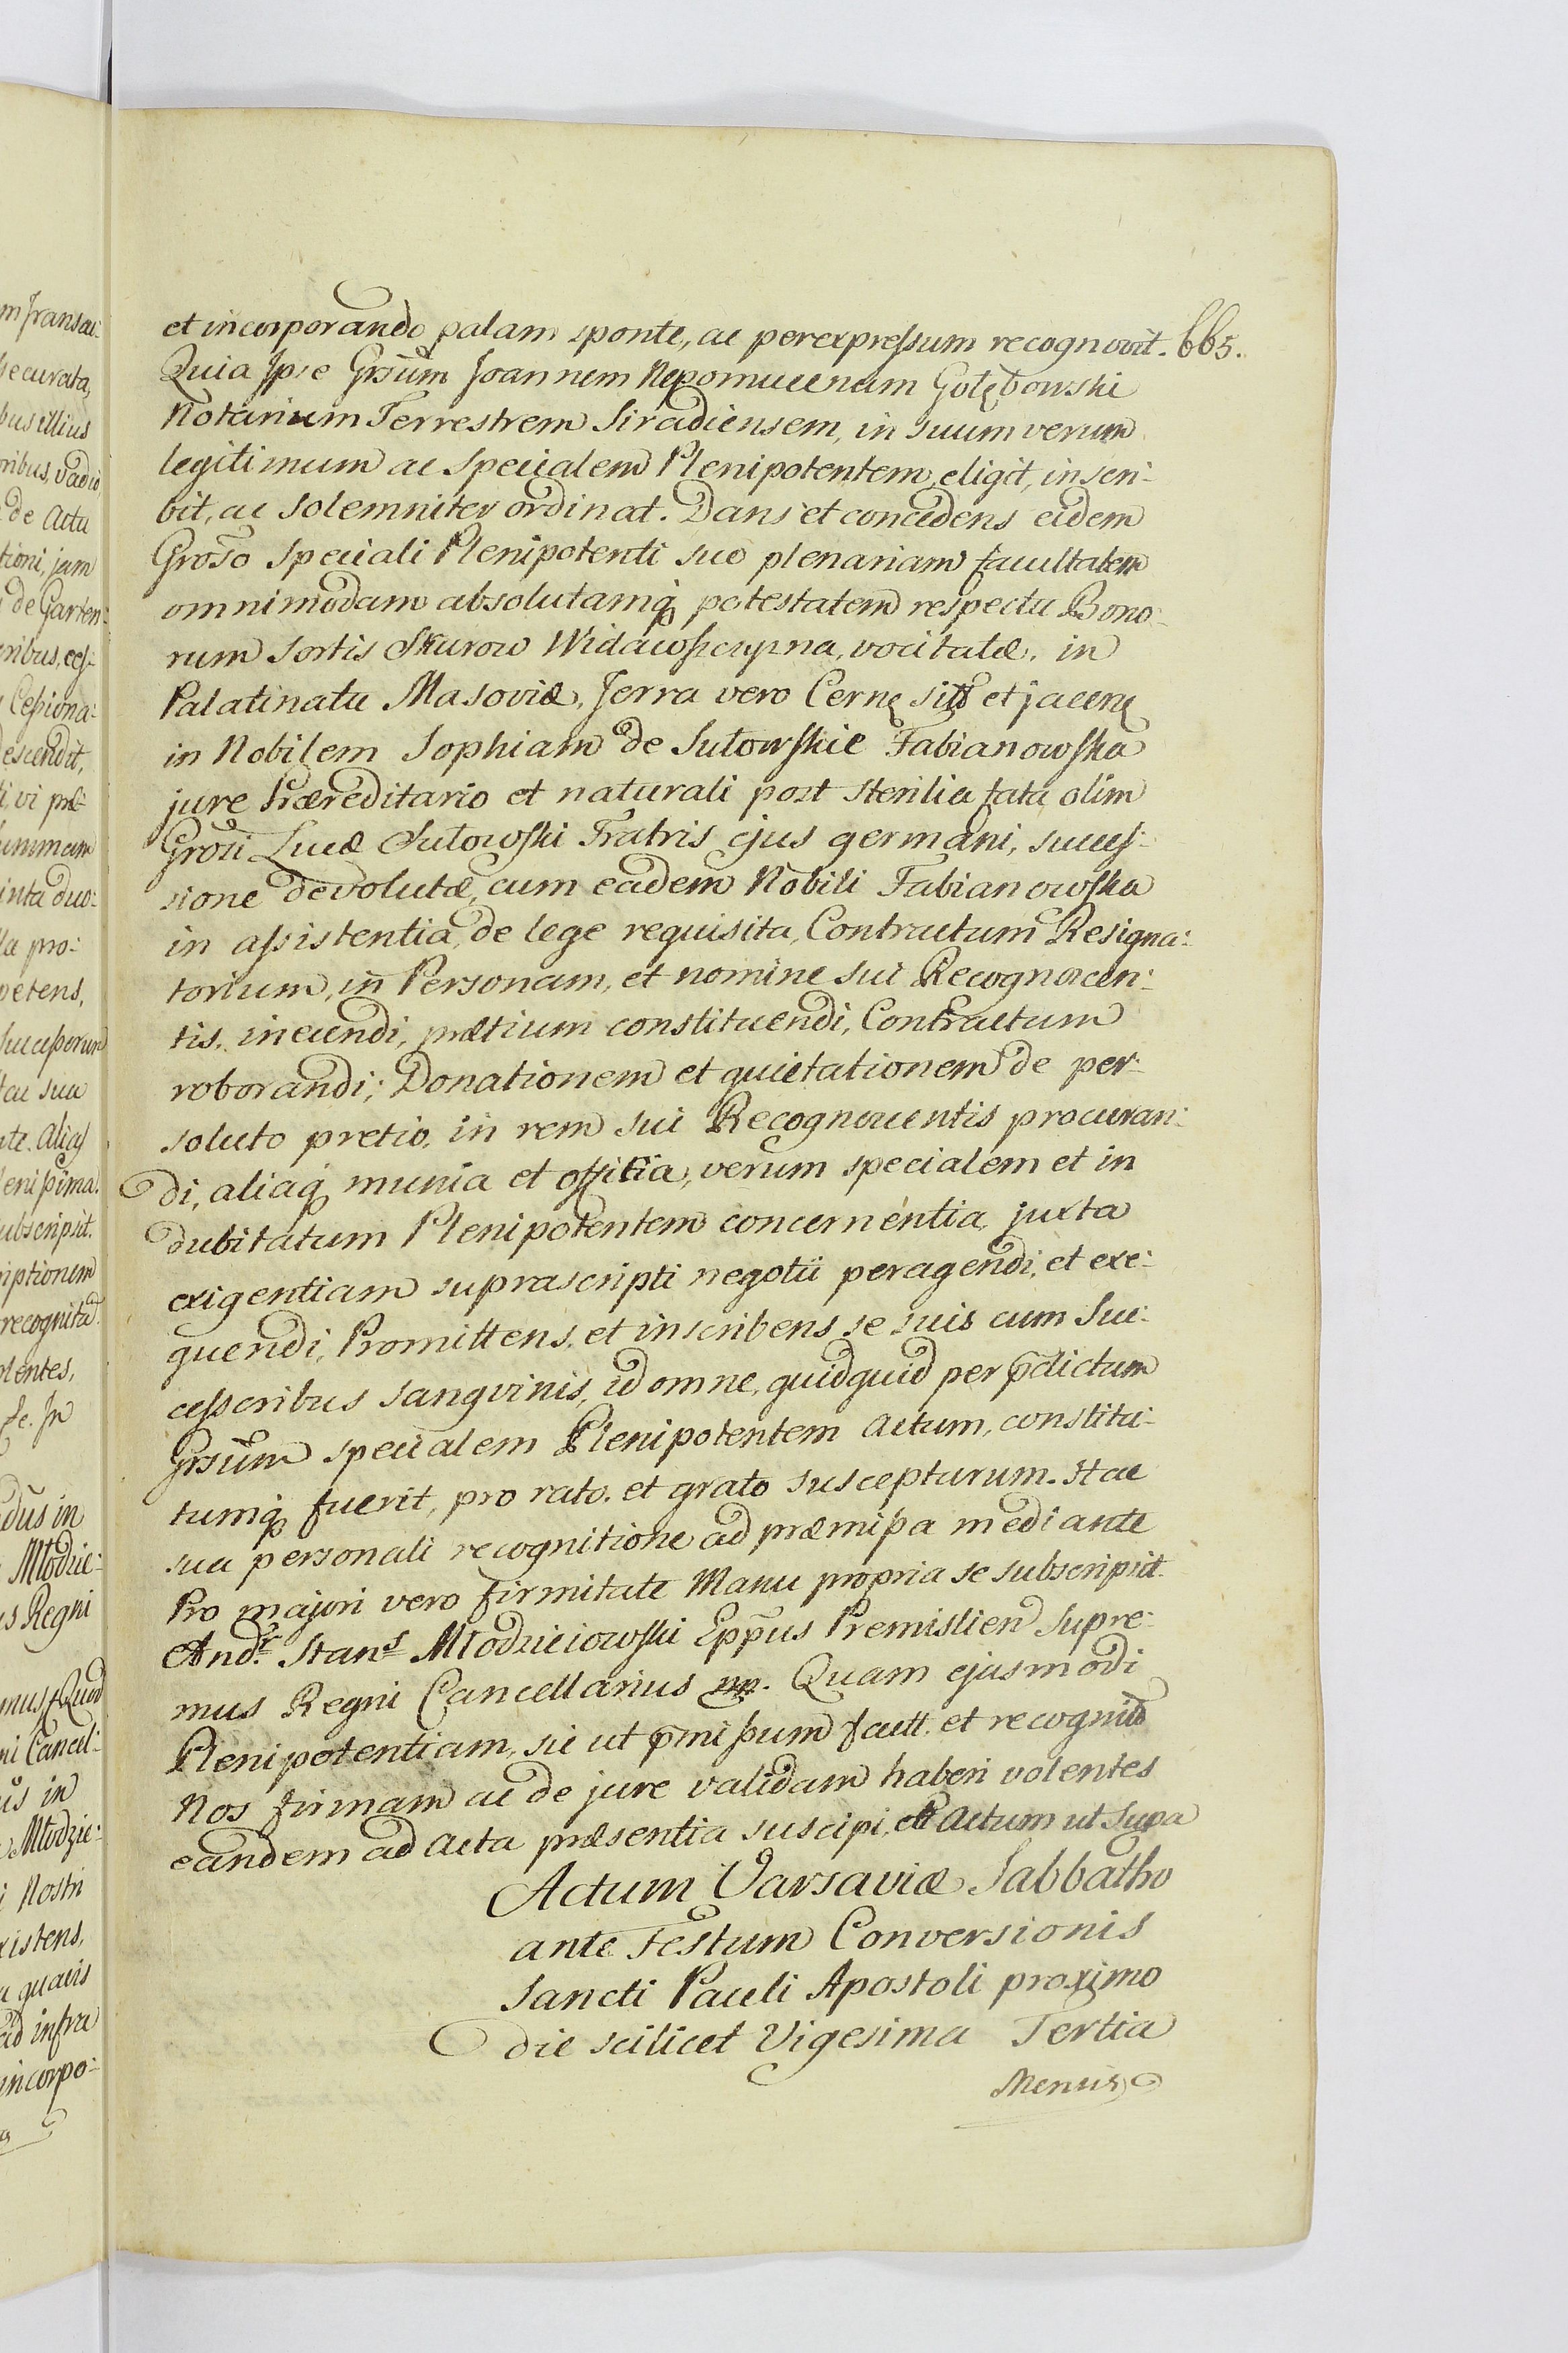 et incorporando palam sponte, ac per expressum recognovit. 665.
Quia Ipse Grsum Joannem Nepomucenum Gołębowski
Notarium Terrestrem Siradiensem, in suum verum
legitimum ac specialem Plenipotentem eligit, inscri-
bit, ac solemniter ordinat. Dans et concedens eidem
Groso speciali Plenipotenti suo plenariam facultatem
omnimodam absolutamq potestatem respectu Bono-
rum sortis Skurow Widawszczyzna, vocitatæ, in
Palatinatu Masoviæ, Terra vero Cernę sitt et jacenę
in Nobilem Sophiam de Sułowskie Fabianowska
jure hæreditario et naturali post sterilia fata olim
Grosi Lucæ Sułowski Fratris ejus germani, succes-
sione devolutæ, cum eadem Nobili Fabianowska
in assistentia de lege requisita, Contractum Resigna:
torium, in Personam, et nomine sui Recognoscen:
tis, ineundi, prætium constituendi, Contractum
roborandi; Donationem et quietationem de per:
soluto pretio, in rem sui Recognoscentis procuran:
di, aliaq munia et offitia, verum specialem et in
dubitatum Plenipotentem concernentia, juxta
exigentiam suprascripti negotii peragendi, et exe:
quendi, Promittens, et inscribens se suis cum Suc:
cessoribus sangvinis, id omne, quidquid per p̄dictum
Grsum specialem Plenipotentem actum, constitu:
tumq fuerit, pro rato, et grato suscepturum. Hac
sua personali recognitione ad præmissa mediante
Pro majori vero firmitate Manu propria se subscripsit.
Andr. Stans Młodzieiowski Eppus Premislien Supre:
mus Regni Cancellarius mp. Quam ejusmodi
Plenipotentiam, sic ut p̄missum factt. et recognitt
Nos firmam ac de jure validam haberi volentes
eandem ad Acta præsentia suscipi, ett Actum ut Supa
Actum Varsaviæ Sabbatho
ante Festum Conversionis
Sancti Pauli Apostoli proximo
die scilicet Vigesima Tertia
Mensis